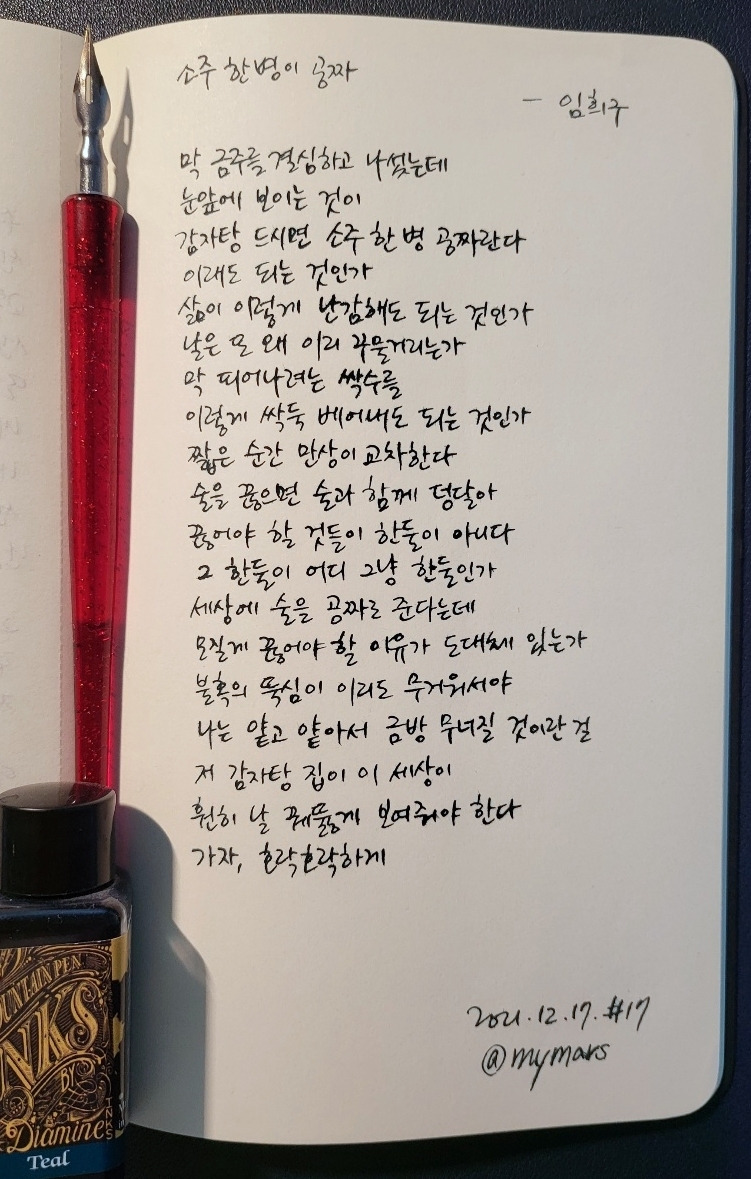 소주 한 병이 공짜
- 임희구
막 금주를 결심하고 나섰는데
눈앞에 보이는 것이
감자탕 드시면 소주 한 병 공짜란다
이래도 되는 것인가
삶이 이렇게 난감해도 되는 것인가
날은 또 왜 이리 꾸물거리는가
막 피어나려는 싹수를
이렇게 싹둑 베어내도 되는 것인가
짧은 순간 만상이 교차한다
술을 끊으면 술과 함께 덩달아
끊어야 할 것들이 한둘이 아니다
그 한둘이 어디 그냥 한둘인가
세상에 술을 공짜로 준다는데
모질게 끊어야 할 이유가 도대체 있는가
불혹의 뚝심이 이리도 무거워서야
나는 얕고 얕아서 금방 무너질 것이란 걸
저 감자탕 집이 이 세상이
훤히 날 꿰뚫게 보여줘야 한다
가자, 호락호락하게
2021.12.17.#17
@mymars
FOUNTAIN PEN
INKS
BY
Diamine
Teal